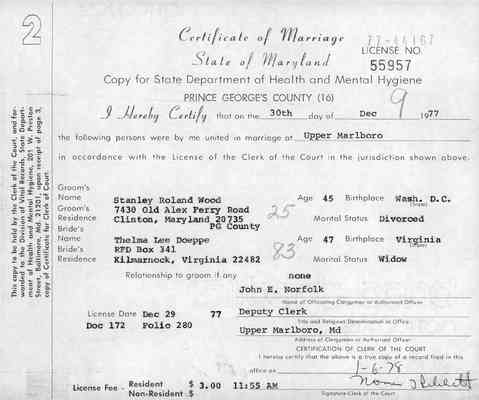 2
Certificate of Marriage
State of Maryland
LICENSE NO.
55957
Copy for State Department of Health and Mental Hygiene
PRINCE GEORGE'S COUNTY (16)
9
I Hereby Certify that on the 30th day of Dec 1977
the following persons were by me united in marriage at Upper Marlboro
in accordance with the License of the Clerk of the Court in the jurisdiction shown above.
Groom's
Name Stanley Roland Wood Age 45 Birthplace Wash. D.C.
(State)
Groom's 7430 Old Alex Ferry Road 25
Residence Clinton, Maryland 20735 Marital Status Divorced
PG County
Bride's
Name Thelma Lee Doeppe Age 47 Birthplace Virginia
(State)
Bride's RFD Box 341 83
Residence Kilmarnock, Virginia 22482 Marital Status Widow
Relationship to groom if any none
John E. Norfolk
Name of Officiating Clergyman or Authorized Officer
License Date Dec 29 77 Deputy Clerk
Title and Religious Denomination or Office
Doc 172 Folio 280 Upper Marlboro, Md
Address of Clergyman or Authorized Officer
CERTIFICATION OF CLERK OF THE COURT
I hereby certify that the above is a true copy of a record filed in this
office on 1-6-78
License Fee - Resident $ 3.00 11:55 AM
Non-Resident $
Signature-Clerk of the Court
This copy to be held by the Clerk of the Court, and for-
warded to the Division of Vital Records, State Depart-
ment of Health and Mental Hygiene, 201 W. Preston
Street, Baltimore, Md. 21201, upon receipt of page 3,
copy of Certificate for Clerk of Court.